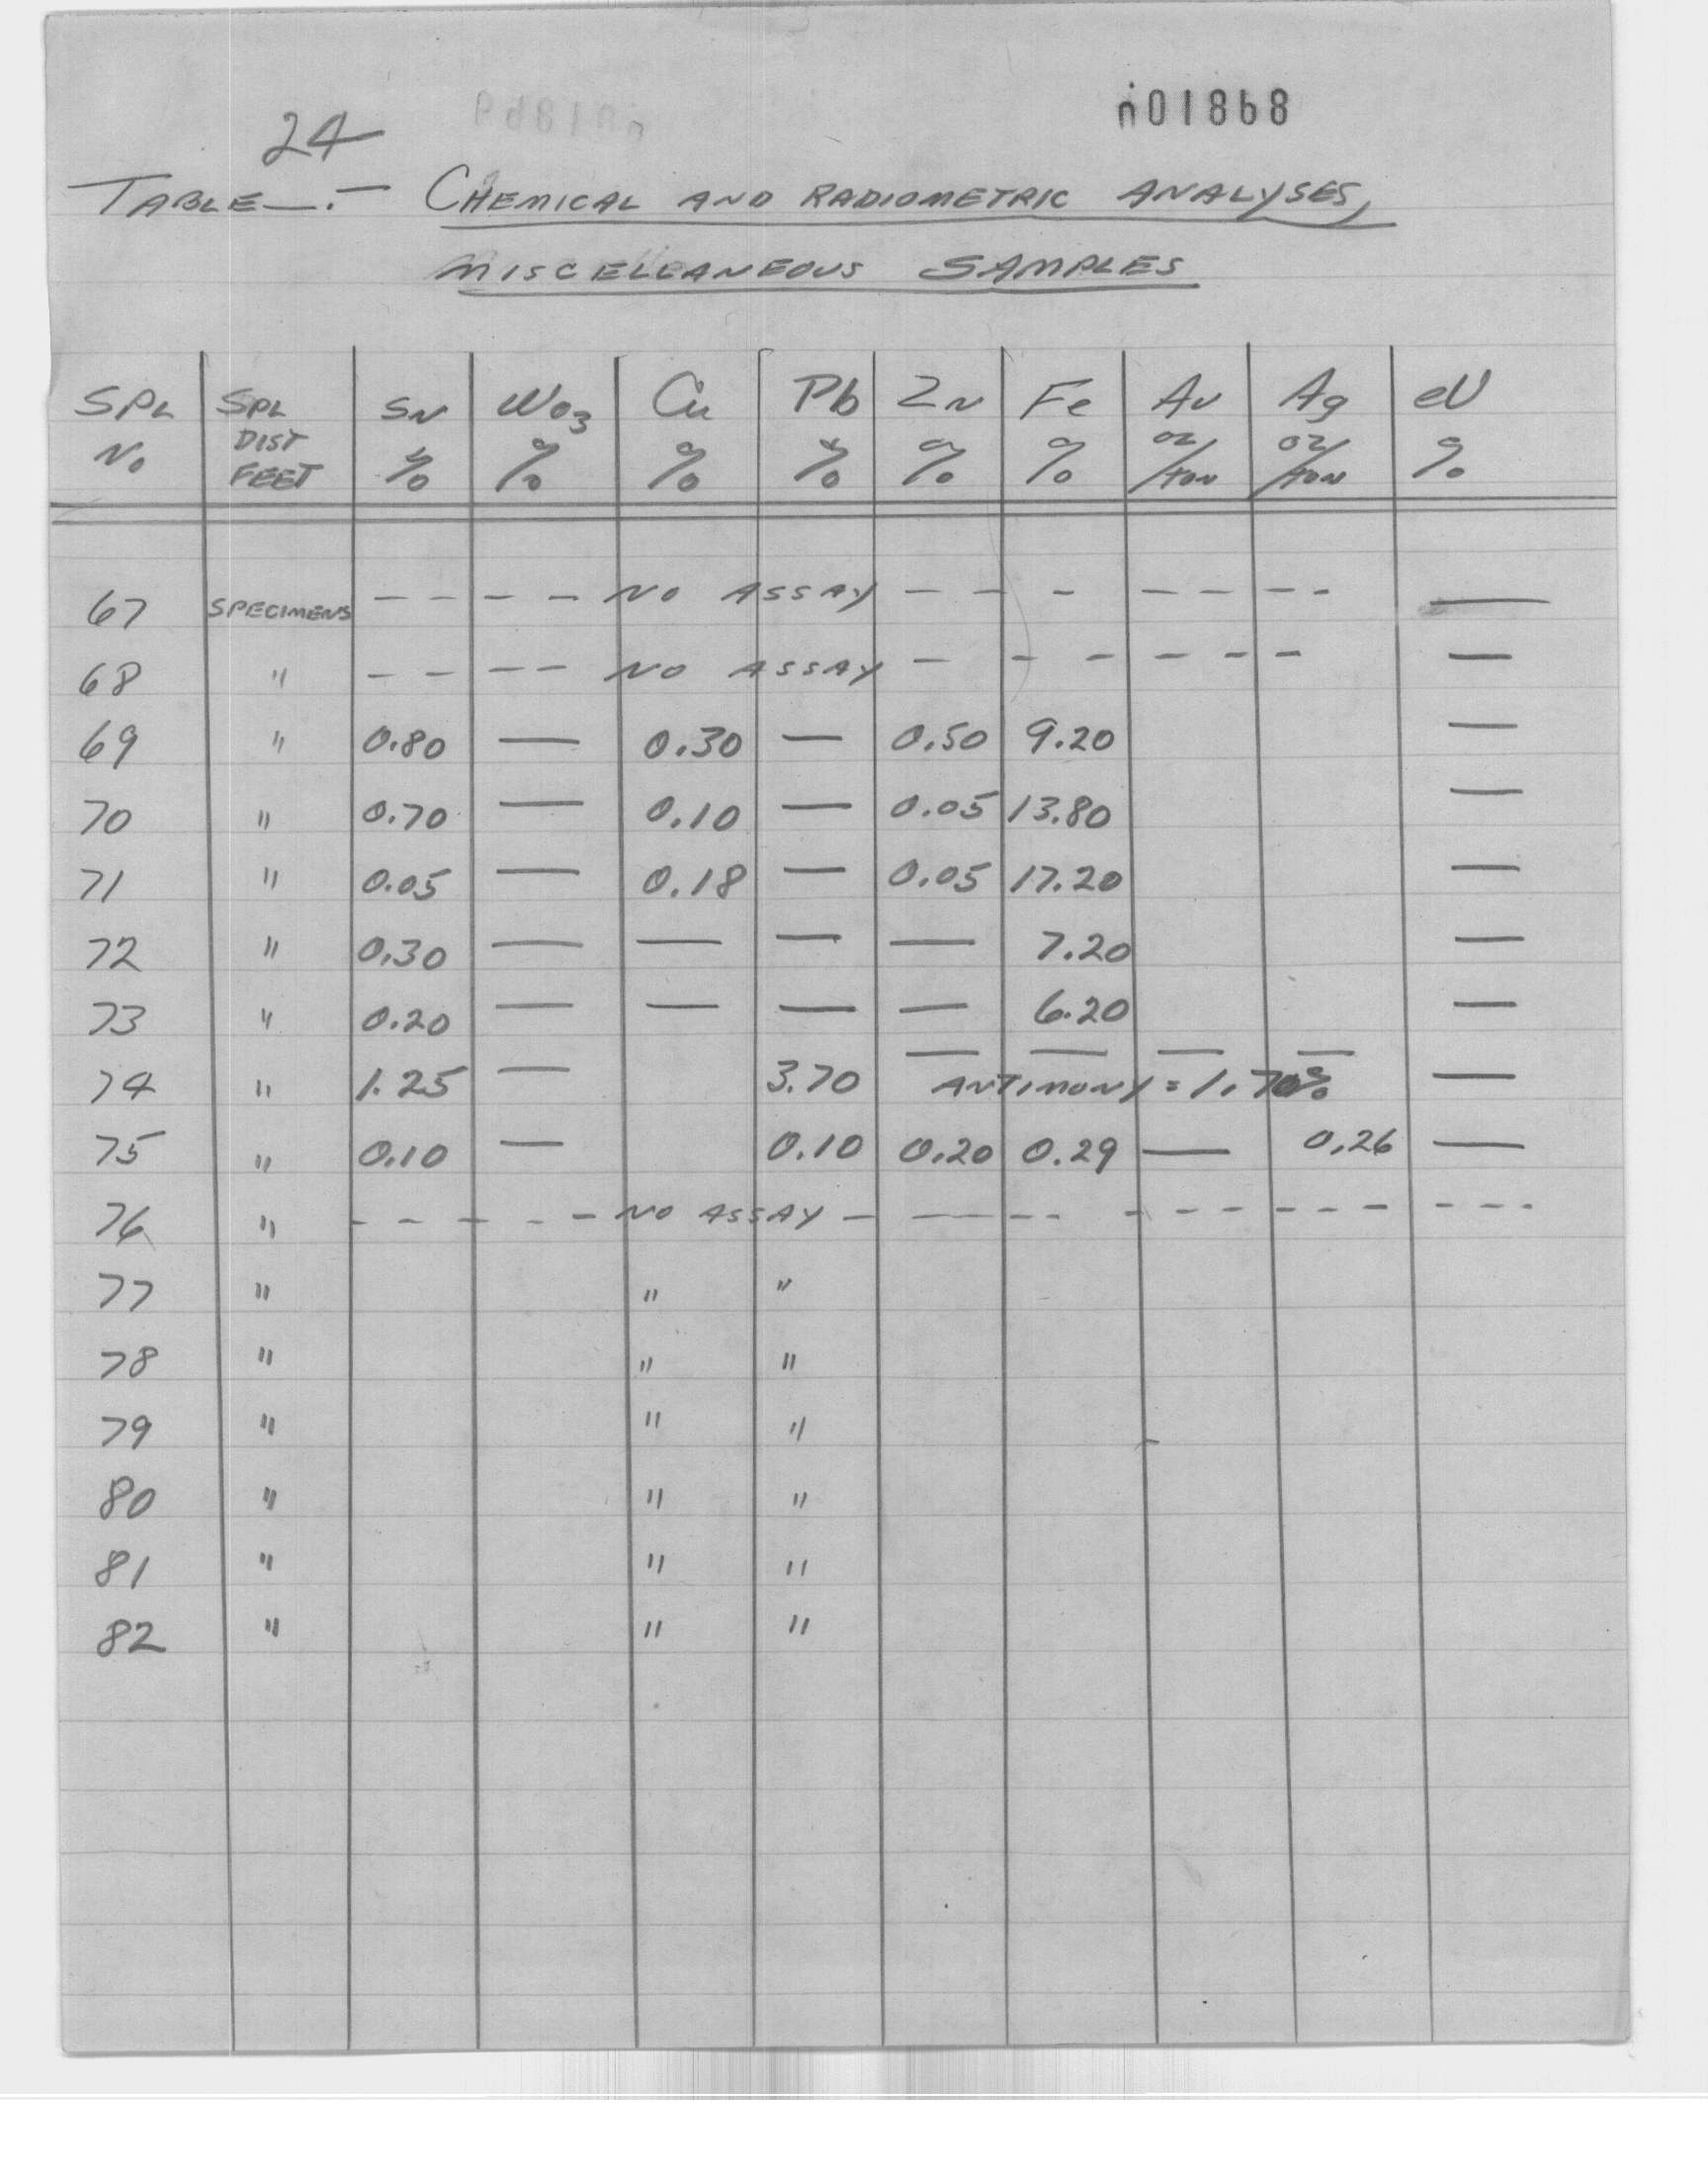 n01868
24
TABLE—.— CHEMICAL AND RADIOMETRIC ANALYSES,
MISCELLANEOUS SAMPLES
SPL No | SPL DIST FEET | SN % | WO3 % | Cu % | Pb % | ZN % | Fe % | AU oz/TON | Ag oz/TON | eU %
67 SPECIMENS – – – – – NO ASSAY – – – – – – – —
68 " – – – – NO ASSAY – – – – – – —
69 " 0.80 — 0.30 — 0.50 9.20 —
70 " 0.70 — 0.10 — 0.05 13.80 —
71 " 0.05 — 0.18 — 0.05 17.20 —
72 " 0.30 — — — — 7.20 —
73 " 0.20 — — — — 6.20 —
74 " 1.25 — 3.70 — — — — ANTIMONY = 1.70% —
75 " 0.10 — 0.10 0.20 0.29 — 0.26 —
76 " – – – – – – NO ASSAY – — – – – – – – – – – – –
77 " " "
78 " " "
79 " " "
80 " " "
81 " " "
82 " " "